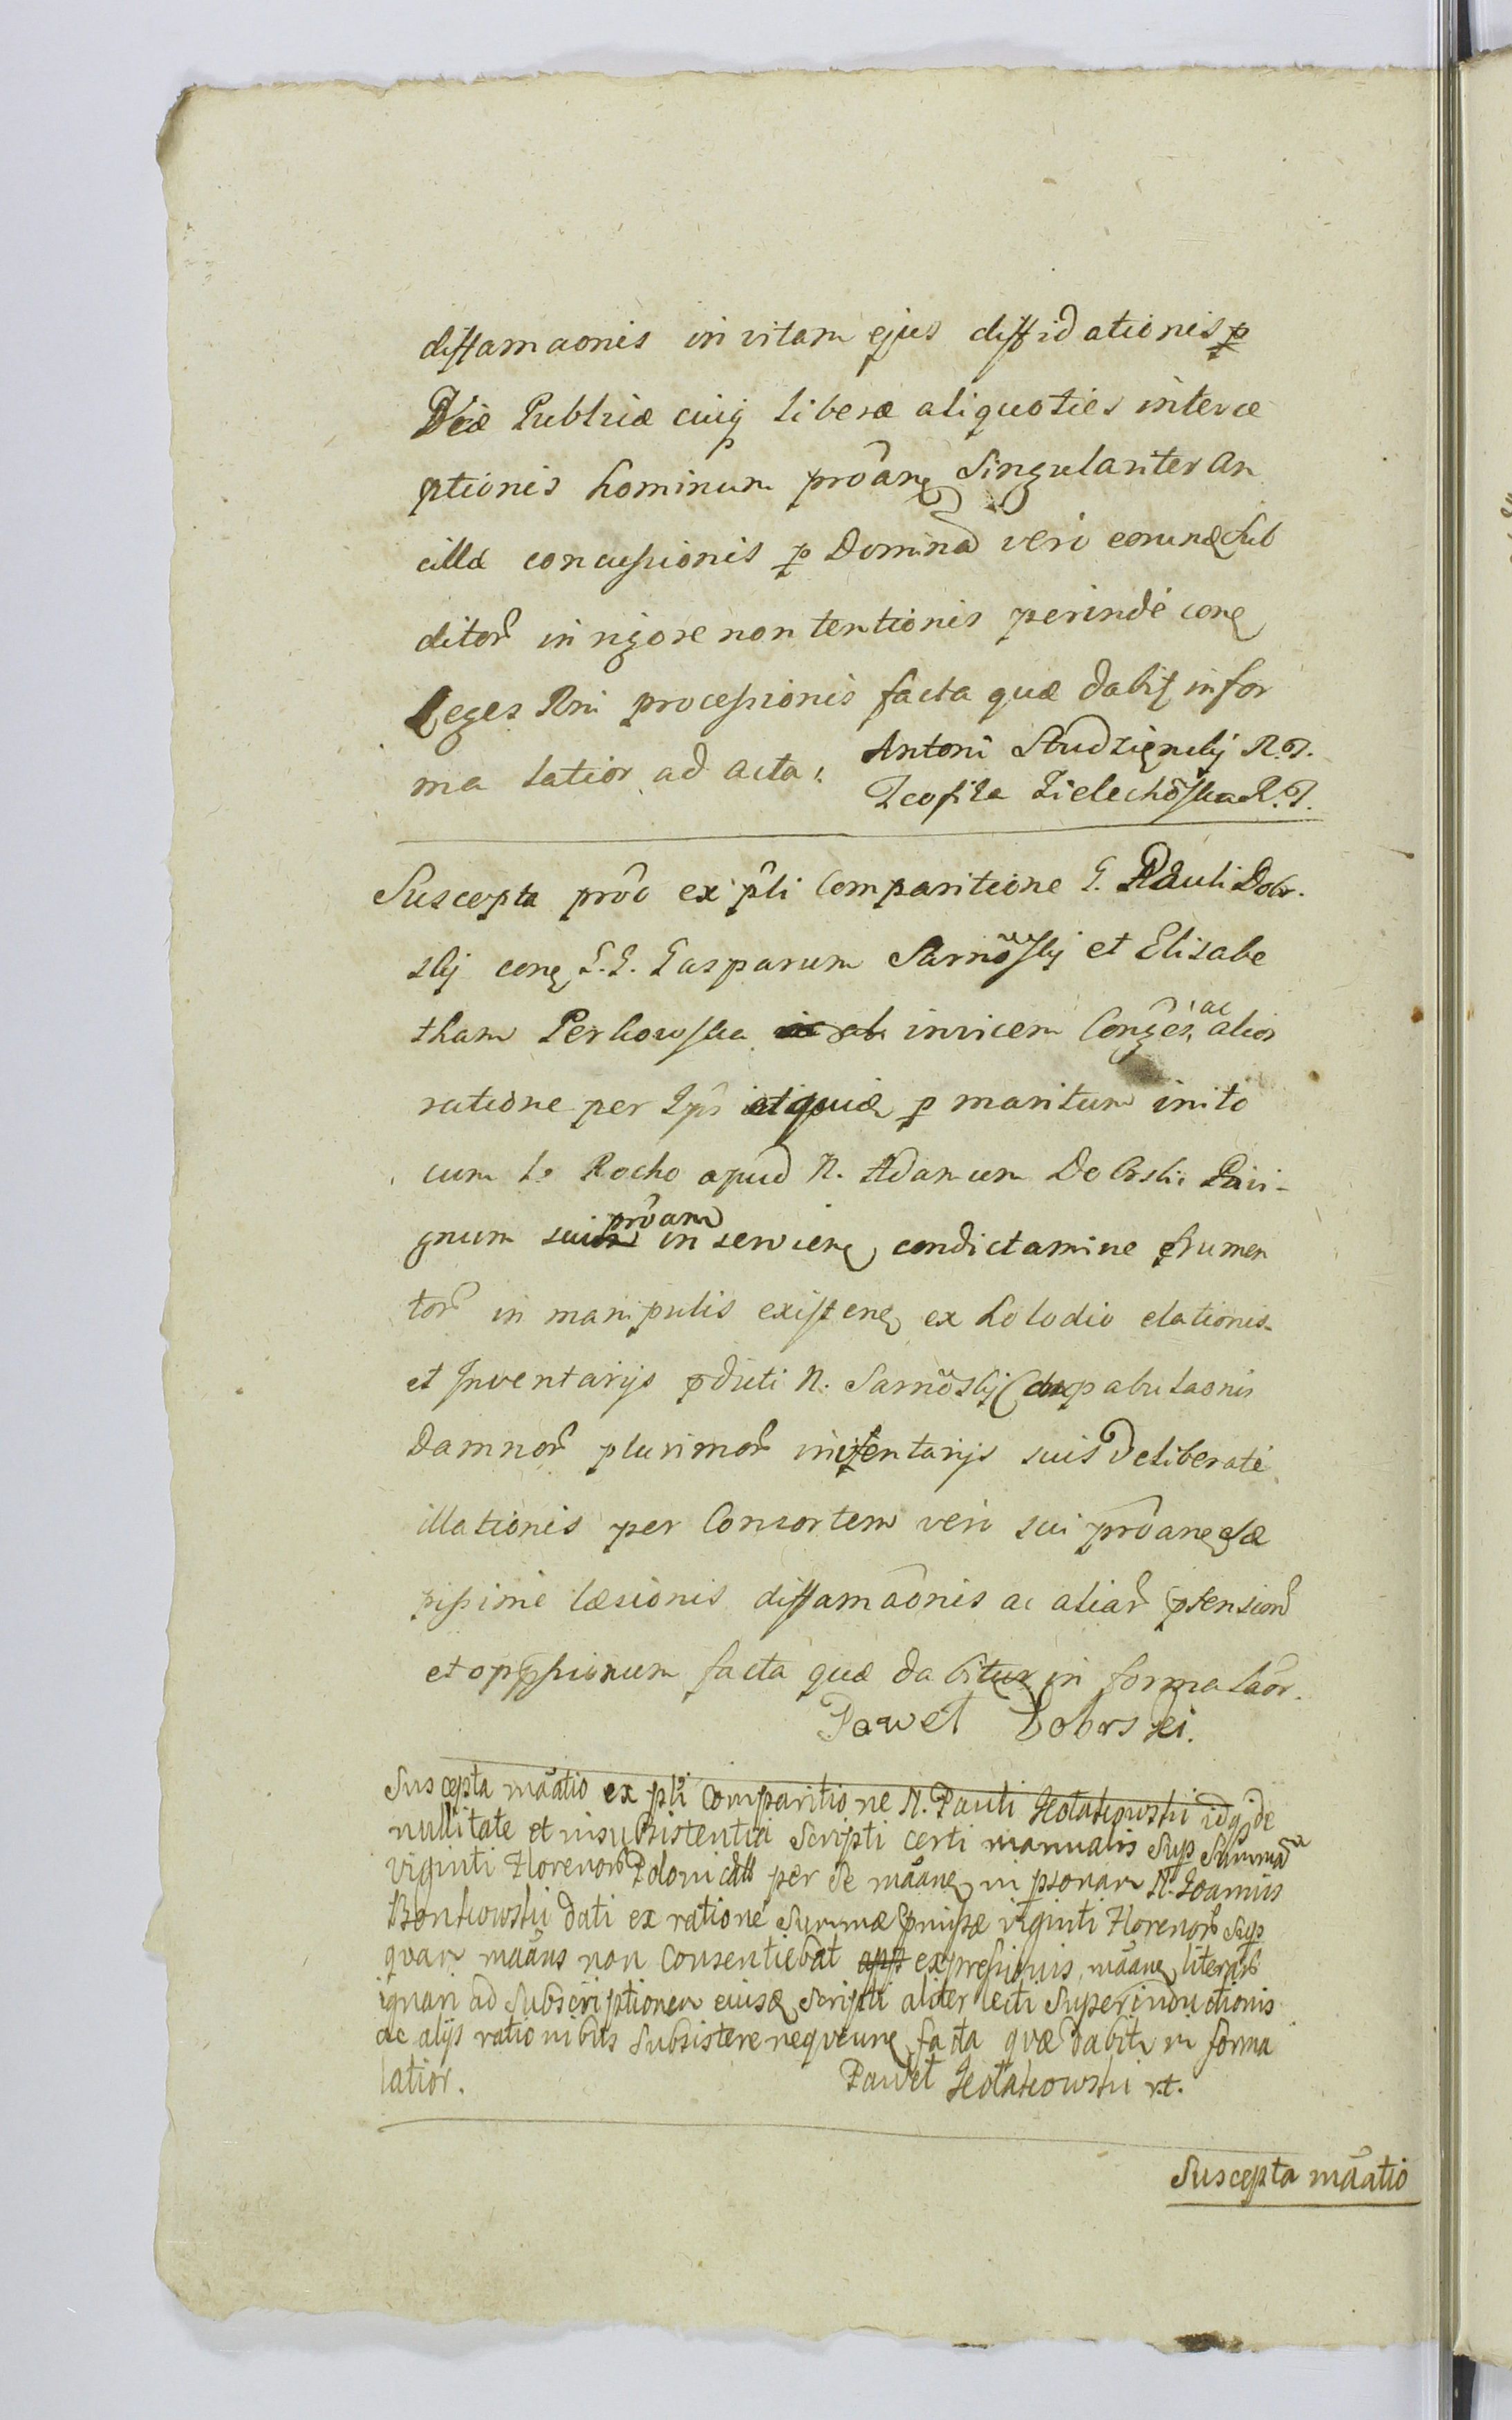 diffamaonis in vitam ejus diffidationis p
Viæ Publicæ cuiq liberæ aliquoties interce
ptionis hominum prôane singulariter An
cillæ concussionis p Dominâ veri eorunde Sub
ditor in rigore non tentionis perinde cone
Leges Rni processionis facta quæ dabit in for
ma latior ad acta.
Antoni Studzienskj R.P.
Teofila Zielechôska R.P.
Suscepta prôo ex pli Comparitione G. Pauli Dobr.
skj cone G.G. Gasparum Sarnôskj et Elisabe
tham Perkowska invicem Conges ac alior
ratione per Ips p maritum inito
cum Ie Rocho apud N. Adamum Dobrski Privi-
gnum suum prôane inserviene condictamine frumen
tor in manipulis existene ex Lolodio elationis
et Inventarys pdicti N. Sarnôskj depabulaonis
Damnor plurimor inventarys suis Deliberate
illationis per Consortem veri sui prôane sæ
pissime læsionis diffamâonis ac aliar ptension
et oppssionum facta quæ dabitur in forma laôr.
Paweł Dobrski.
Suscepta mâatio ex pli Comparitione N. Pauli Kołakowski idq de
nullitate et insubsistentia Scripti certi manualis Sup Summa
viginti Florenor Polonical per se mâane in psonam N. Joannis
Bonkowski dati ex ratione Summæ pmissæ viginti Florenor Sup
quam mâans non Consentiebat expressionis mâane literar
ignari ad Subscriptionem eiusde Scripti aliter lecti Superinductionis
ac alijs rationibus Subsistere nequeune facta quæ dabitr in forma
latior.
Paweł Kołakowski rt.
Suscepta mâatio